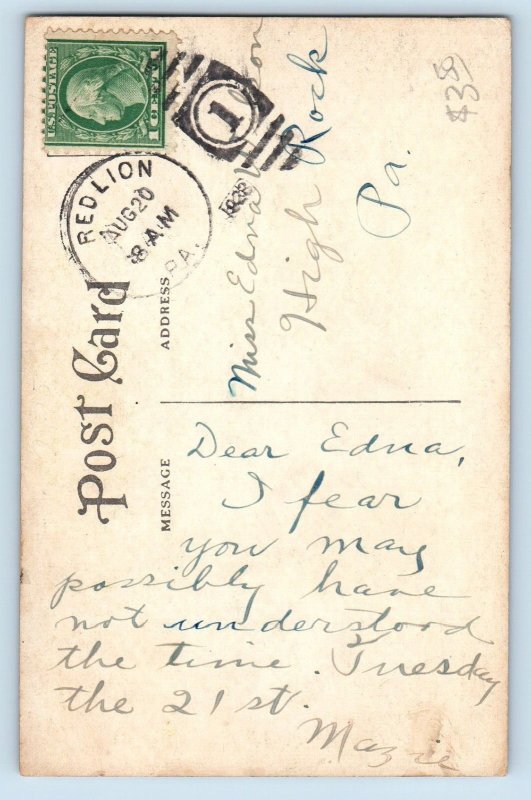 U.S. POSTAGE
1 CENT 1
1
RED LION
AUG 20
8 AM
PA.
Post Card
ADDRESS
Miss Edna
High Rock
Pa.
MESSAGE
Dear Edna,
I fear
you may
possibly have
not understood
the time. Tuesday
the 21st.
Mazie